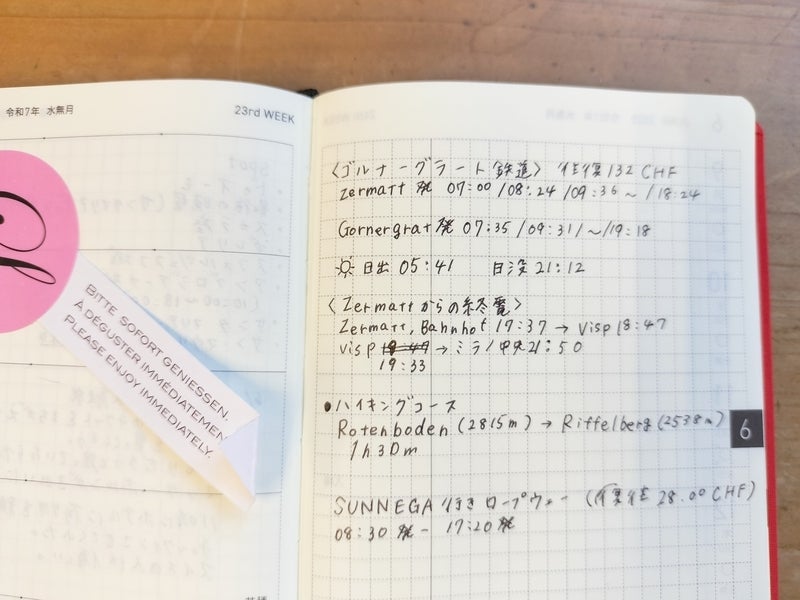 令和7年 水無月
23rd WEEK
BITTE SOFORT GENIESSEN.
À DÉGUSTER IMMÉDIATEMEN
PLEASE ENJOY IMMEDIATELY.
〈ゴルナーグラート鉄道〉 往復132 CHF
Zermatt 発 07:00 /08:24 /09:36 ~ /18:24
Gornergrat 発 07:35 /09:31/~/19:18
日出 05:41 日没 21:12
〈Zermattからの終電〉
Zermatt, Bahnhof 17:37 → Visp 18:47
Visp → ミラノ中央21:50
19:33
●ハイキングコース
Rotenboden (2815m) → Riffelberg (2538m)
1h30m
6
SUNNEGA 行きロープウェー (復往 28.00 CHF)
08:30 発 - 17:20 発